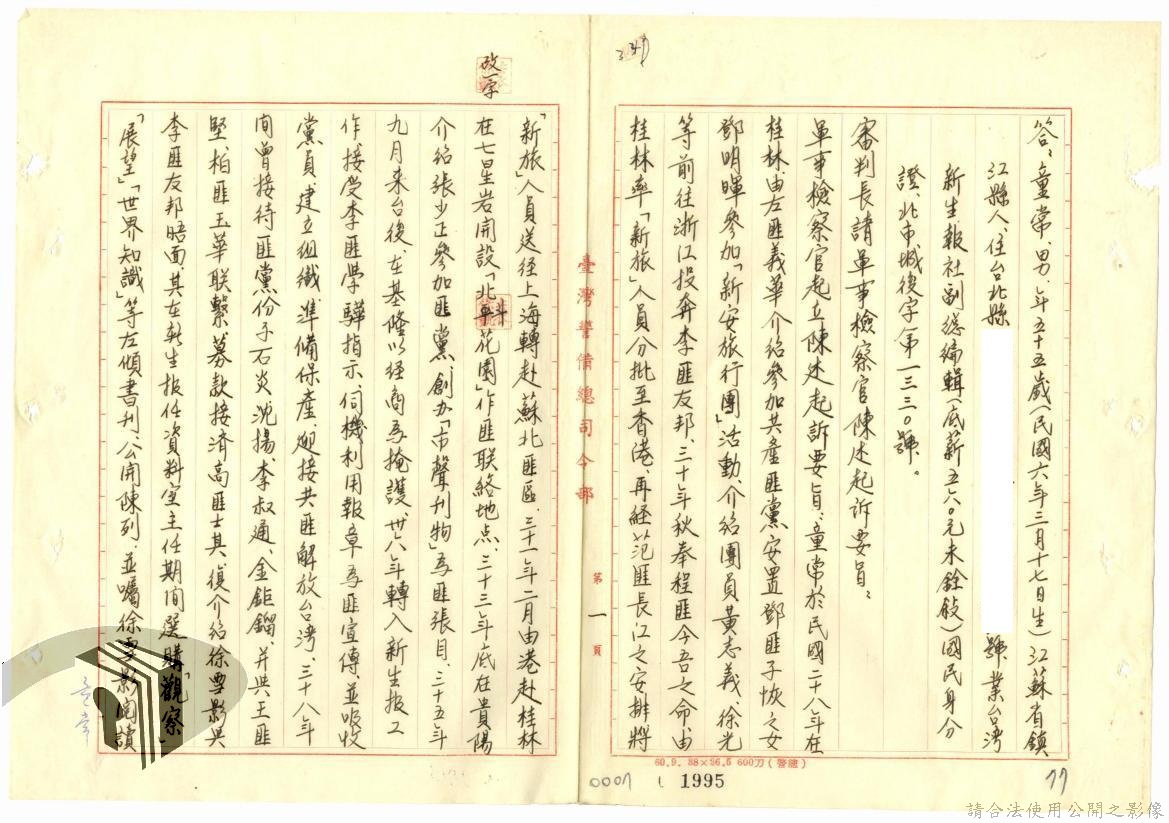 答：童常、男、年五十五歲（民國六年三月十七日生）江蘇省鎮
江縣人、住台北縣　號業台灣
新生報社副總編輯（底薪五六〇元未銓敍）國民身分
證、北市城後字第一三三〇號。
審判長請軍事檢察官陳述起訴要旨：
軍事檢察官起立陳述起訴要旨：童常於民國二十八年在
桂林、由左匪義華介紹參加共產匪黨、安置鄧匪子恢之女
鄧明暉參加「新安旅行團」活動、介紹團員黃志義、徐光
等前往浙江投奔李匪友邦、三十年秋奉程匪今吾之命、由
桂林率「新旅」人員分批至香港、再經范匪長江之安排將
臺灣警備總司令部
第一頁
改一字
「新旅」人員送經上海轉赴蘇北匪區、三十一年二月由港赴桂林
在七星岩開設「北斗花園」作匪联絡地点、三十三年底在貴陽
介紹張少正參加匪黨、創办「市聲刊物」為匪張目、三十五年
九月來台後、在基隆以經商為掩護、卅八年轉入新生報工
作、接受李匪學驊指示、伺機利用報章為匪宣傳、並吸收
黨員建立組織、準備保產、迎接共匪解放台湾、三十八年
間曾接待匪黨份子石炎、沈揚、李叔通、金鉅鎦、并與王匪
堅、柏匪玉華联繫、募款接济高匪士其、復介紹徐雪影與
李匪友邦晤面、其在新生报任資料室主任期间選購「觀察」
「展望」「世界知識」等左傾書刊、公開陳列、並囑徐雪影閱讀
童常
60.9. 38×26.5 600刀（警總）
0007
1995
77
請合法使用公開之影像